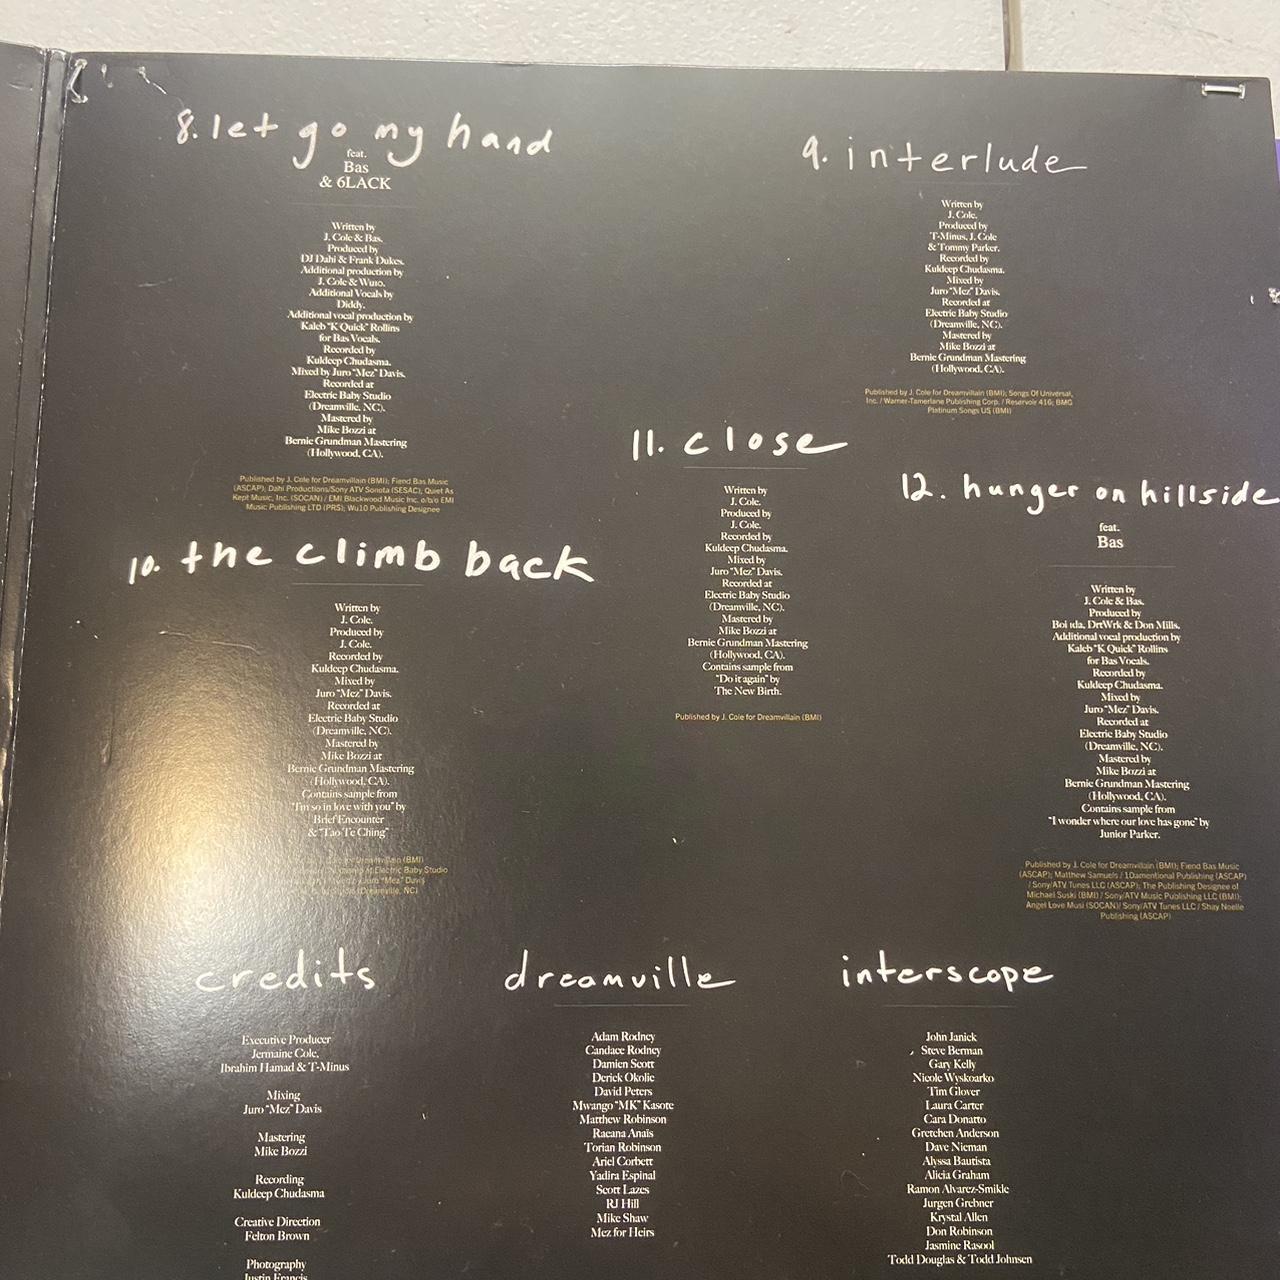 8. let go my hand
feat.
Bas
& 6LACK
Written by
J. Cole & Bas.
Produced by
DJ Dahi & Frank Dukes.
Additional production by
J. Cole & Wu10.
Additional Vocals by
Diddy.
Additional vocal production by
Kaleb "K Quick" Rollins
for Bas Vocals.
Recorded by
Kuldeep Chudasma.
Mixed by Juro "Mez" Davis.
Recorded at
Electric Baby Studio
(Dreamville, NC).
Mastered by
Mike Bozzi at
Bernie Grundman Mastering
(Hollywood, CA).
Published by J. Cole for Dreamvillain (BMI); Fiend Bas Music
(ASCAP); Dahi Productions/Sony ATV Sonota (SESAC), Quiet As
Kept Music, Inc. (SOCAN) / EMI Blackwood Music Inc. o/b/o EMI
Music Publishing LTD (PRS); Wu10 Publishing Designee
9. interlude
Written by
J. Cole.
Produced by
T-Minus, J. Cole
& Tommy Parker.
Recorded by
Kuldeep Chudasma.
Mixed by
Juro "Mez" Davis.
Recorded at
Electric Baby Studio
(Dreamville, NC).
Mastered by
Mike Bozzi at
Bernie Grundman Mastering
(Hollywood, CA).
Published by J. Cole for Dreamvillain (BMI); Songs Of Universal,
Inc. / Warner-Tamerlane Publishing Corp. / Reservoir 416; BMG
Platinum Songs US (BMI)
10. the climb back
Written by
J. Cole.
Produced by
J. Cole.
Recorded by
Kuldeep Chudasma.
Mixed by
Juro "Mez" Davis.
Recorded at
Electric Baby Studio
(Dreamville, NC).
Mastered by
Mike Bozzi at
Bernie Grundman Mastering
(Hollywood, CA).
Contains sample from
"I'm so in love with you" by
Brief Encounter
& "Tao Te Ching"
Cole for Dreamvillain (BMI)
at Electric Baby Studio
Juro "Mez" Davis
(Dreamville, NC)
11. close
Written by
J. Cole.
Produced by
J. Cole.
Recorded by
Kuldeep Chudasma.
Mixed by
Juro "Mez" Davis.
Recorded at
Electric Baby Studio
(Dreamville, NC).
Mastered by
Mike Bozzi at
Bernie Grundman Mastering
(Hollywood, CA).
Contains sample from
"Do it again" by
The New Birth.
Published by J. Cole for Dreamvillain (BMI)
12. hunger on hillside
feat.
Bas
Written by
J. Cole & Bas.
Produced by
Boi 1da, DrtWrk & Don Mills.
Additional vocal production by
Kaleb "K Quick" Rollins
for Bas Vocals.
Recorded by
Kuldeep Chudasma.
Mixed by
Juro "Mez" Davis.
Recorded at
Electric Baby Studio
(Dreamville, NC).
Mastered by
Mike Bozzi at
Bernie Grundman Mastering
(Hollywood, CA).
Contains sample from
"I wonder where our love has gone" by
Junior Parker.
Published by J. Cole for Dreamvillain (BMI); Fiend Bas Music
(ASCAP); Matthew Samuels / 1Damentional Publishing (ASCAP)
/ Sony/ATV Tunes LLC (ASCAP); The Publishing Designee of
Michael Suski (BMI) / Sony/ATV Music Publishing LLC (BMI);
Angel Love Musi (SOCAN)/ Sony/ATV Tunes LLC / Shay Noelle
Publishing (ASCAP)
credits
Executive Producer
Jermaine Cole,
Ibrahim Hamad & T-Minus
Mixing
Juro "Mez" Davis
Mastering
Mike Bozzi
Recording
Kuldeep Chudasma
Creative Direction
Felton Brown
Photography
Justin Francis
dreamville
Adam Rodney
Candace Rodney
Damien Scott
Derick Okolie
David Peters
Mwango "MK" Kasote
Matthew Robinson
Raeana Anaïs
Torian Robinson
Ariel Corbett
Yadira Espinal
Scott Lazes
RJ Hill
Mike Shaw
Mez for Heirs
interscope
John Janick
Steve Berman
Gary Kelly
Nicole Wyskoarko
Tim Glover
Laura Carter
Cara Donatto
Gretchen Anderson
Dave Nieman
Alyssa Bautista
Alicia Graham
Ramon Alvarez-Smikle
Jurgen Grebner
Krystal Allen
Don Robinson
Jasmine Rasool
Todd Douglas & Todd Johnsen